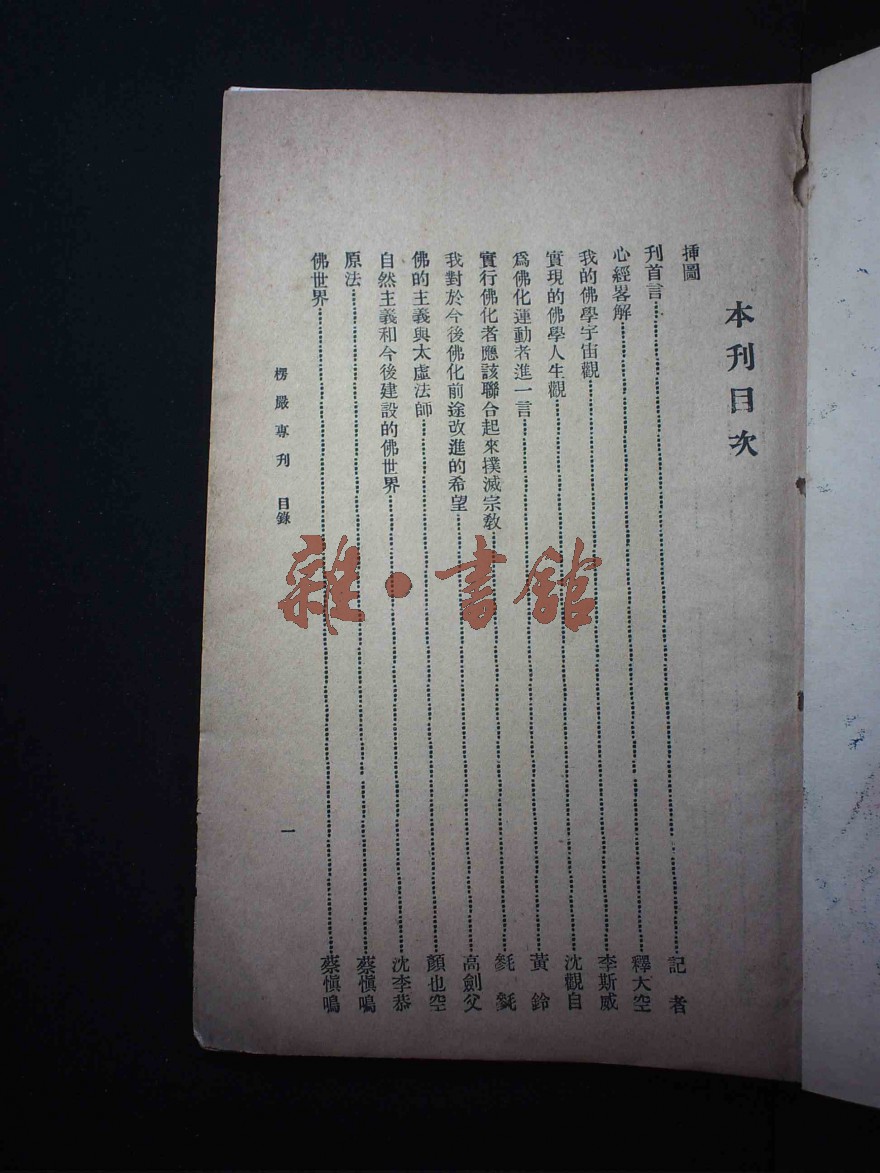 本刊目次
挿圖
刊首言 記者
心經畧解 釋大空
我的佛學宇宙觀 李斯威
實現的佛學人生觀 沈觀自
爲佛化運動者進一言 黃鈴
實行佛化者應該聯合起來撲滅宗教
我對於今後佛化前途改進的希望 高劍父
佛的主義與太虛法師 顏也空
自然主義和今後建設的佛世界 沈李恭
原法 蔡愼鳴
佛世界 蔡愼鳴
楞嚴專刊 目錄
一
雜·書館